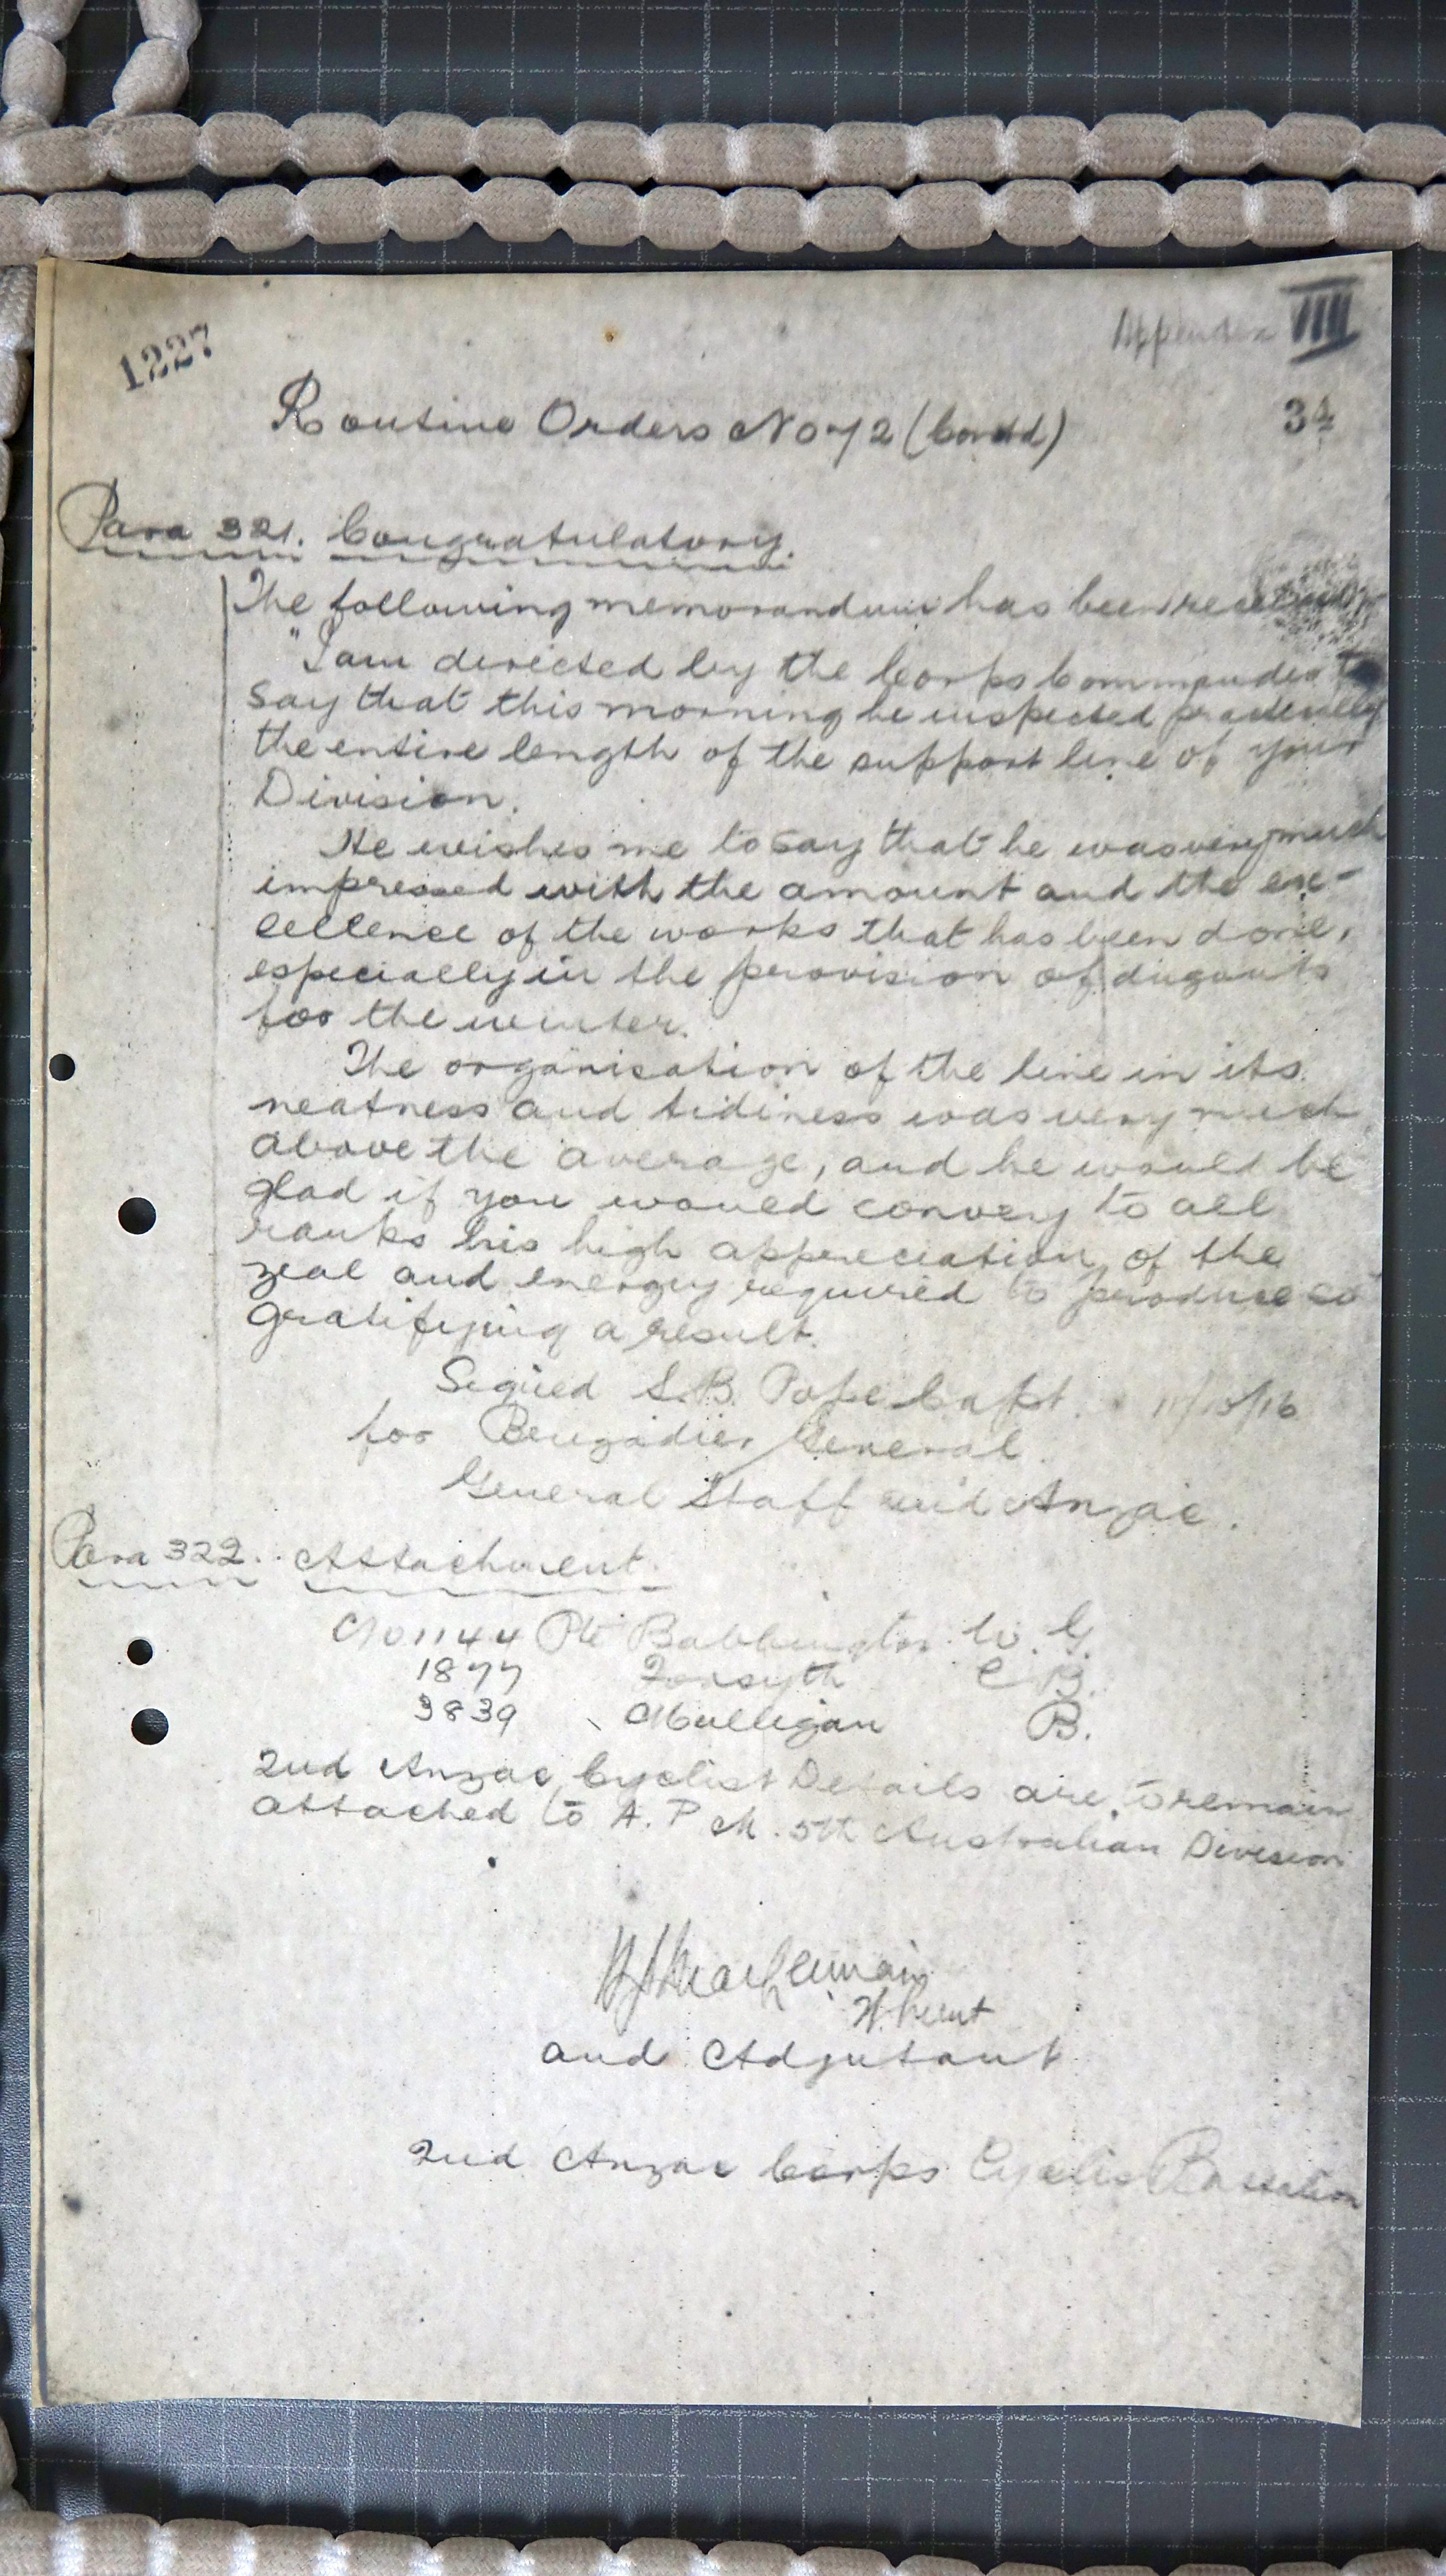 1227
Appendix VIII
34
Routine Orders No 72 (Contd)
Para 321. Congratulatory.
The following memorandum has been received
"I am directed by the Corps Commander to
say that this morning he inspected practically
the entire length of the support line of your
Division.
He wishes me to say that he was very much
impressed with the amount and the ex-
cellence of the works that has been done,
especially in the provision of dugouts
for the winter.
The organisation of the line in its
neatness and tidiness was very much
above the average, and he would be
glad if you would convey to all
ranks his high appreciation of the
zeal and energy required to produce so
gratifying a result.
Signed S.B. Pope Capt. 11/10/16
for Brigadier General
General Staff 2nd Anzac.
Para 322. Attachment.
No 1144 Pte Babbington W. G.
1877 Forsyth C B.
3839 Mulligan B.
2nd Anzac Cyclist Details are to remain
attached to A. P M. 5th Australian Division
Lieut
and Adjutant
2nd Anzac Corps Cyclist Battalion